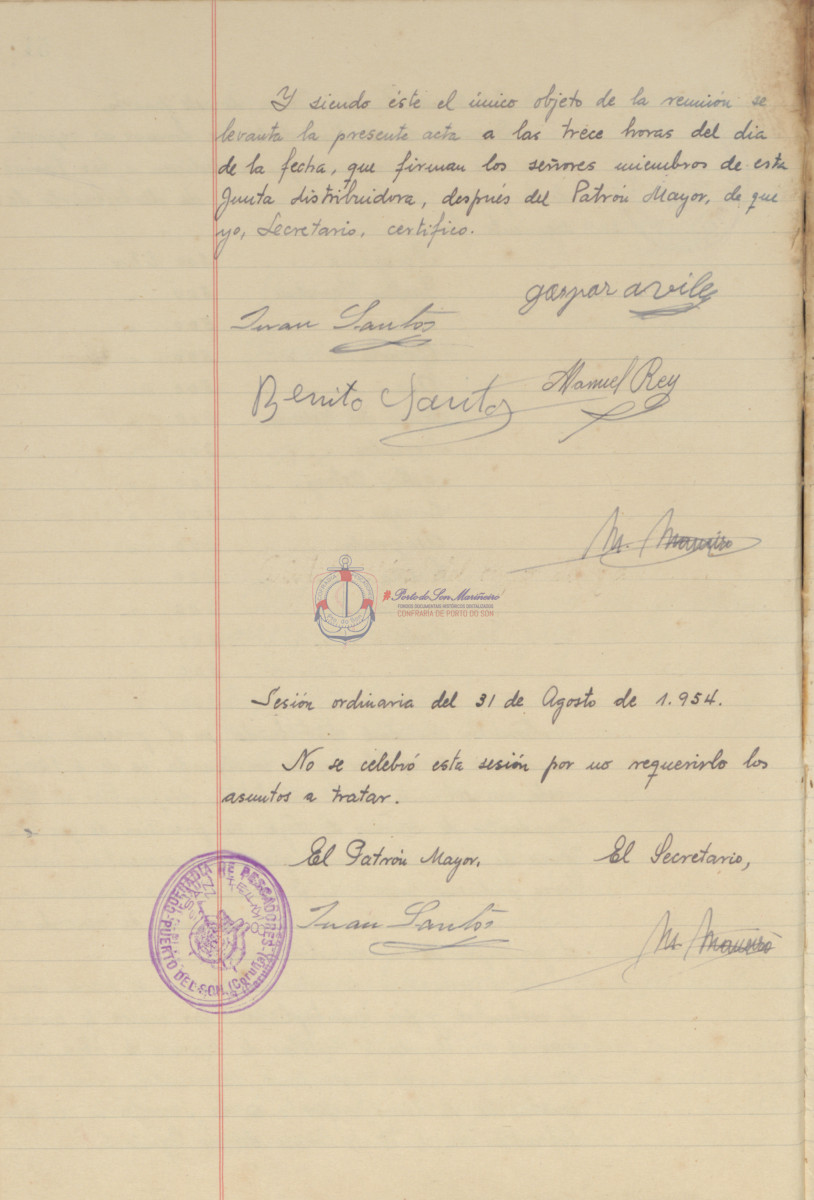 Y siendo éste el único objeto de la reunión se
levanta la presente acta a las trece horas del dia
de la fecha, que firman los señores miembros de esta
Junta distribuidora, después del Patrón Mayor, de que
yo, Secretario, certifico.
gaspar aviles
Juan Santos
Benito Santos
Manuel Rey
M.
Porto do Son Mariñeiro
FONDOS DOCUMENTAIS HISTÓRICOS DIXITALIZADOS
CONFRARÍA DE PORTO DO SON
Sesión ordinaria del 31 de Agosto de 1.954.
No se celebró esta sesión por no requerirlo los
asuntos a tratar.
El Patrón Mayor,
El Secretario,
COFRADIA DE PESCADORES
SAN TELMO
PUERTO DEL SON. (Coruña)
Juan Santos
M.